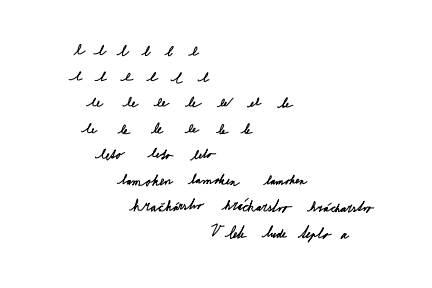 l l l l l l
l l l l l l
le le le le le el le
le le le le le le
leto leto leto
lamohen lamohen lamohen
hračkárstvo hráčkarstvo hráčkarstvo
V lete bude teplo a